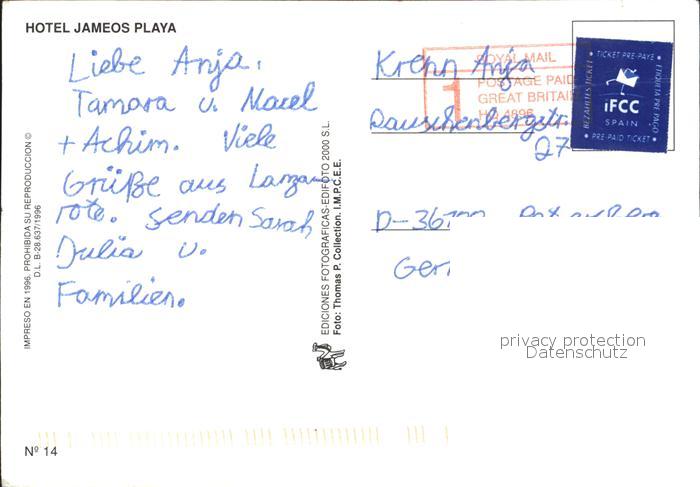 HOTEL JAMEOS PLAYA
Liebe Anja,
Tamara u. Marcel
+ Achim. Viele
Grüße aus Lanza-
rote. senden Sarah
Julia u.
Familien.
IMPRESO EN 1996. PROHIBIDA SU REPRODUCCION ©
D.L. B-28.637/1996
Nº 14
EDICIONES FOTOGRAFICAS-EDIFOTO 2000 S.L.
Foto: Thomas P. Collection. I.M.P.C.E.E.
ROYAL MAIL
POSTAGE PAID
GREAT BRITAIN
1
TICKET PRE-PAYE
BEZAHLTES TICKET
ETIQUETA PRE PAGO
iFCC
SPAIN
PRE-PAID TICKET
Krenn Anja
27
D-36
privacy protection
Datenschutz